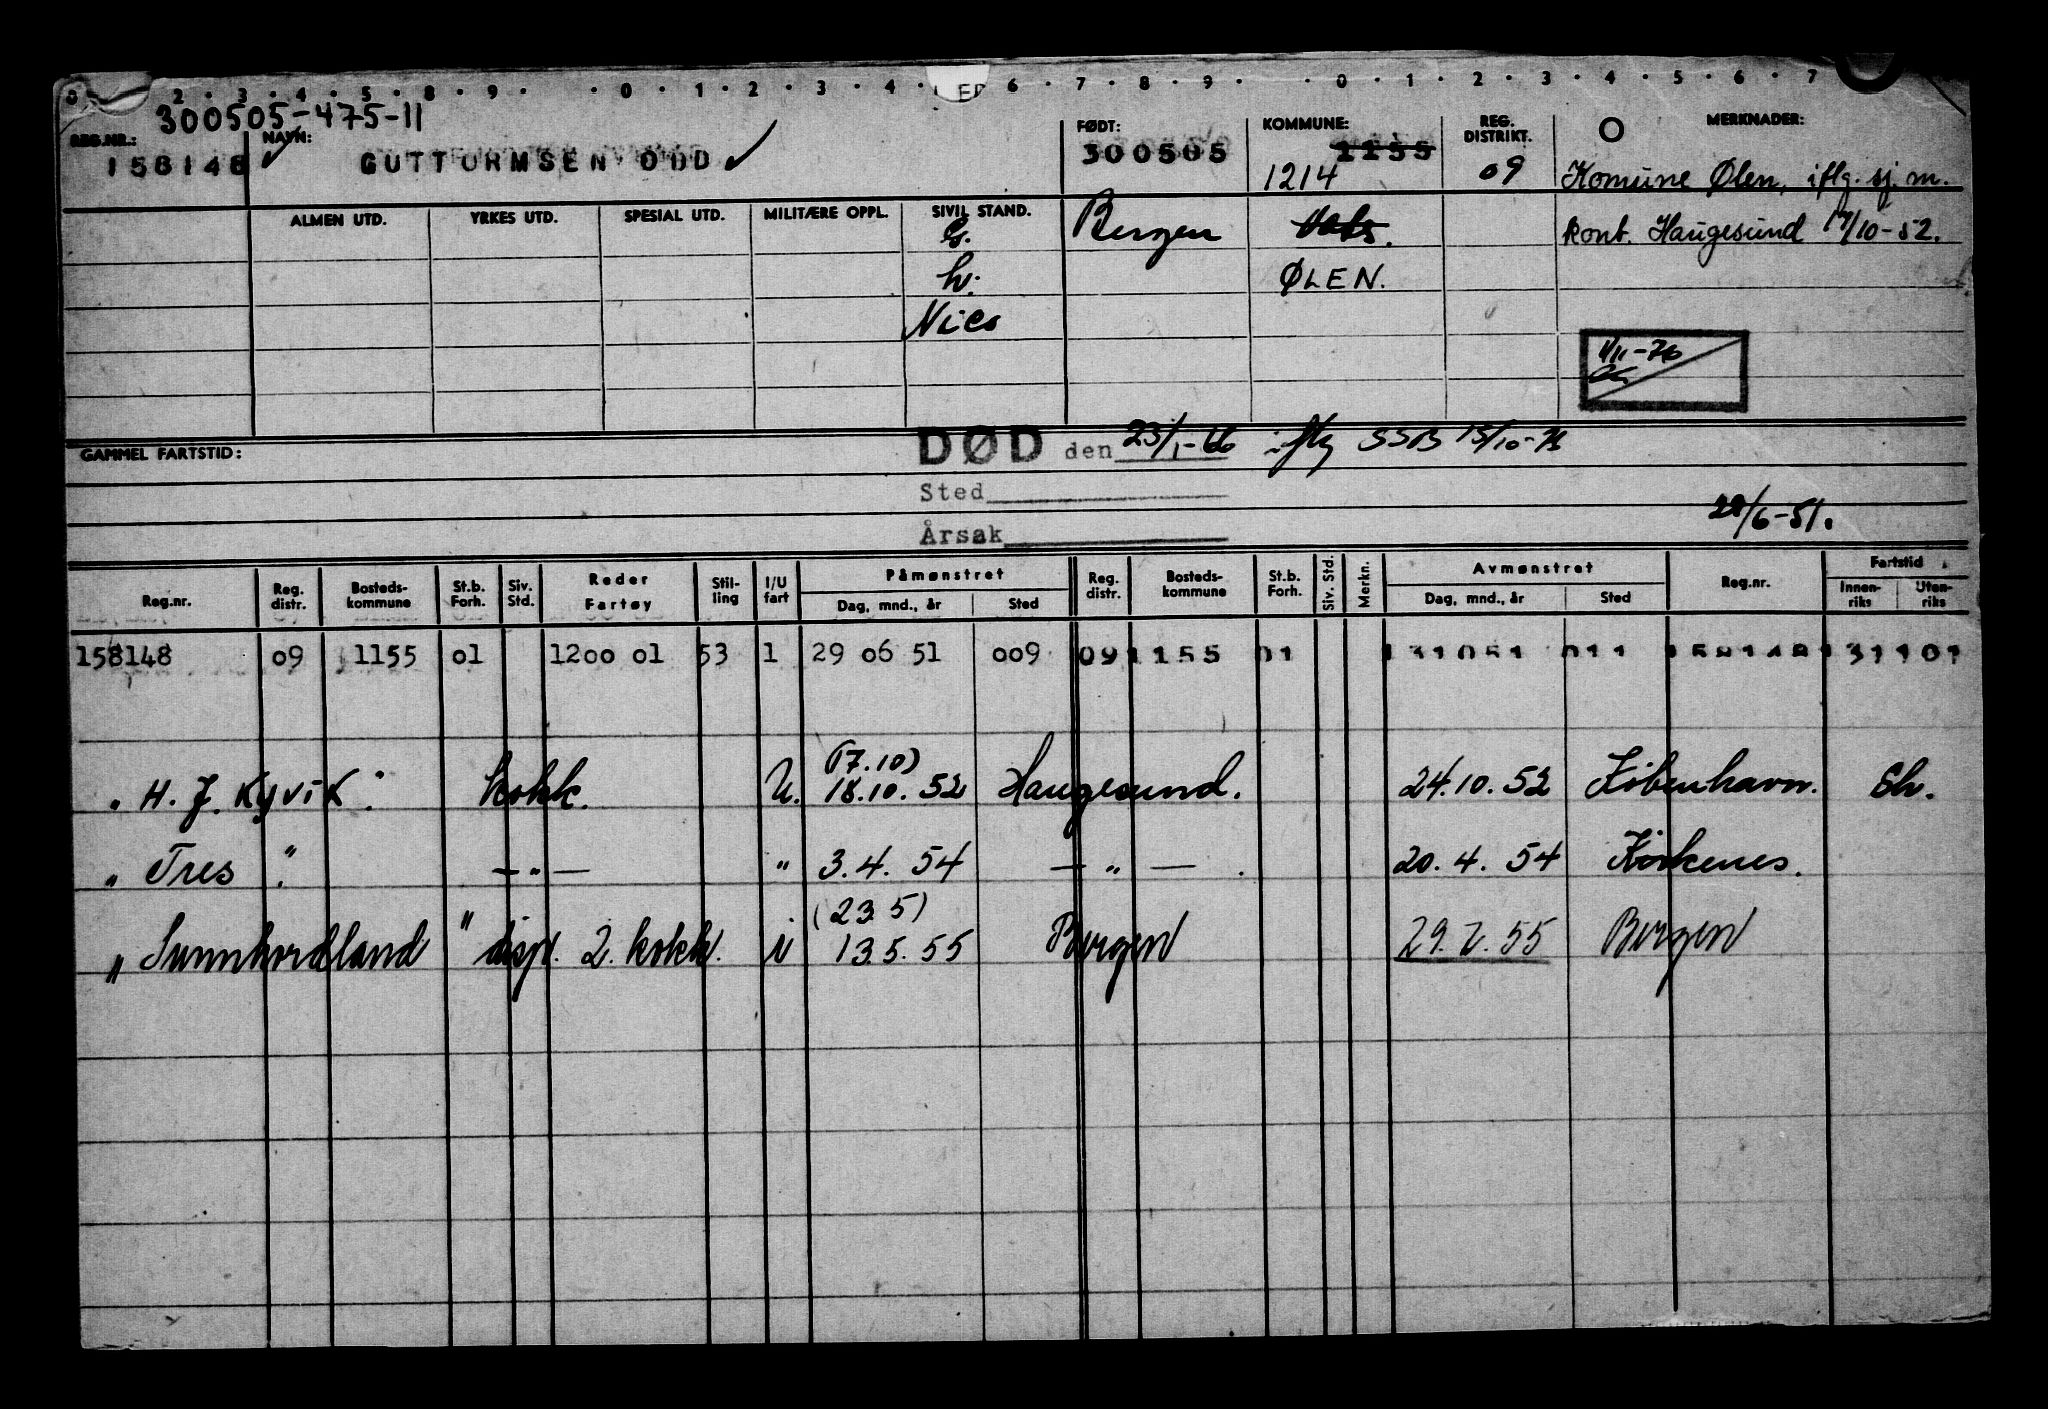 0 2 · 3 · 4 · 5 · 8 · 9 · · 0 · 1 · 2 · 3 · 4 · 6 · 7 · 8 · 9 · · 0 · 1 · 2 · 3 · 4 · 5 · 6 · 7
300505-475-11
REG.NR.: NAVN: FØDT: KOMMUNE: REG. DISTRIKT. MERKNADER:
158148 GUTTORMSEN ODD 300505 1155
1214 09 Komune Ølen, iflg. sj. m.
ALMEN UTD. YRKES UTD. SPESIAL UTD. MILITÆRE OPPL. SIVIL STAND.
G. Bergen Vats. kont. Haugesund 17/10-52.
h. ØLEN.
1/11-76
GAMMEL FARTSTID: DØD den 23/1-66 iflg SSB 15/10-76
Sted
Årsak
28/6-51.
Reg.nr. Reg. distr. Bosteds-kommune St.b. Forh. Siv. Std. Reder Fartøy Stil-ling I/U fart Påmønstret Dag, mnd., år Sted Reg. distr. Bosteds-kommune St.b. Forh. Siv. Std. Merkn. Avmønstret Dag, mnd., år Sted Reg.nr. Fartstid Innen-riks Uten-riks
158148 09 1155 01 1200 01 53 1 29 06 51 009 09 1155 01 131051 011 158148 131101
(17.10)
"H. J. Kyvik". Kokk. U. 18.10. 52 Haugesund. 24.10. 52 København. Sh.
"Tres". — " — " 3.4. 54 — " — . 20. 4. 54 Kirkenes.
(23 5)
"Sunnhordland" disp. 2. kokk. i 13.5. 55 Bergen 29. 7. 55 Bergen